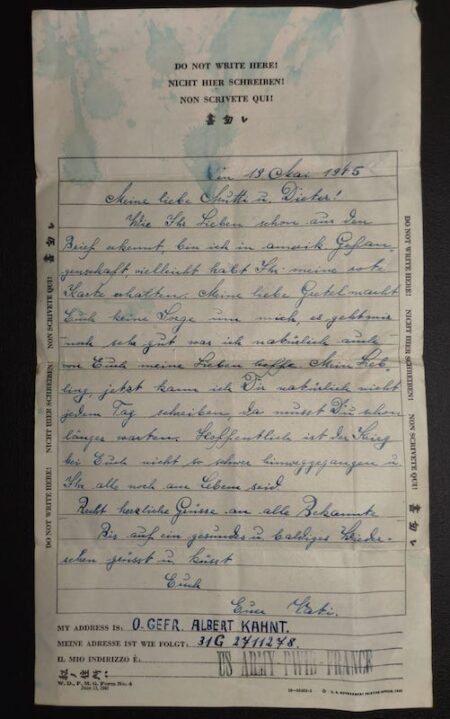 DO NOT WRITE HERE!
NICHT HIER SCHREIBEN!
NON SCRIVETE QUI!
書勿レ
19 Mai 1945
Meine liebe Mutti u. Dieter!
Wie Ihr Lieben schon aus den
Brief erkennt, bin ich in amerik Gefan-
genschaft vielleicht habt Ihr meine rote
Karte erhalten. Meine liebe Gretel macht
Euch keine Sorge um mich, es geht mir
noch sehr gut was ich natürlich auch
von Euch meine Lieben hoffe. Mein Lieb-
ling, jetzt kann ich Dir natürlich nicht
jedem Tag schreiben, da musst Du schon
länger warten. Hoffentlich ist der Krieg
bei Euch nicht so schwer hinweggegangen u
Ihr alle noch am Leben seid.
Recht herzliche Grüsse an alle Bekannte
Bis auf ein gesundes u baldiges Wieder-
sehen grüsst u küsst
Euch
Euer Vati.
DO NOT WRITE HERE! NICHT HIER SCHREIBEN! NON SCRIVETE QUI! 書勿レ
DO NOT WRITE HERE! NICHT HIER SCHREIBEN! NON SCRIVETE QUI! 書勿レ
MY ADDRESS IS: O. GEFR. ALBERT KAHNT.
MEINE ADRESSE IST WIE FOLGT: 31G 2711278.
IL MIO INDIRIZZO È: US ARMY PWIB FRANCE
W. D., P. M. G. Form No. 4
U. S. GOVERNMENT PRINTING OFFICE